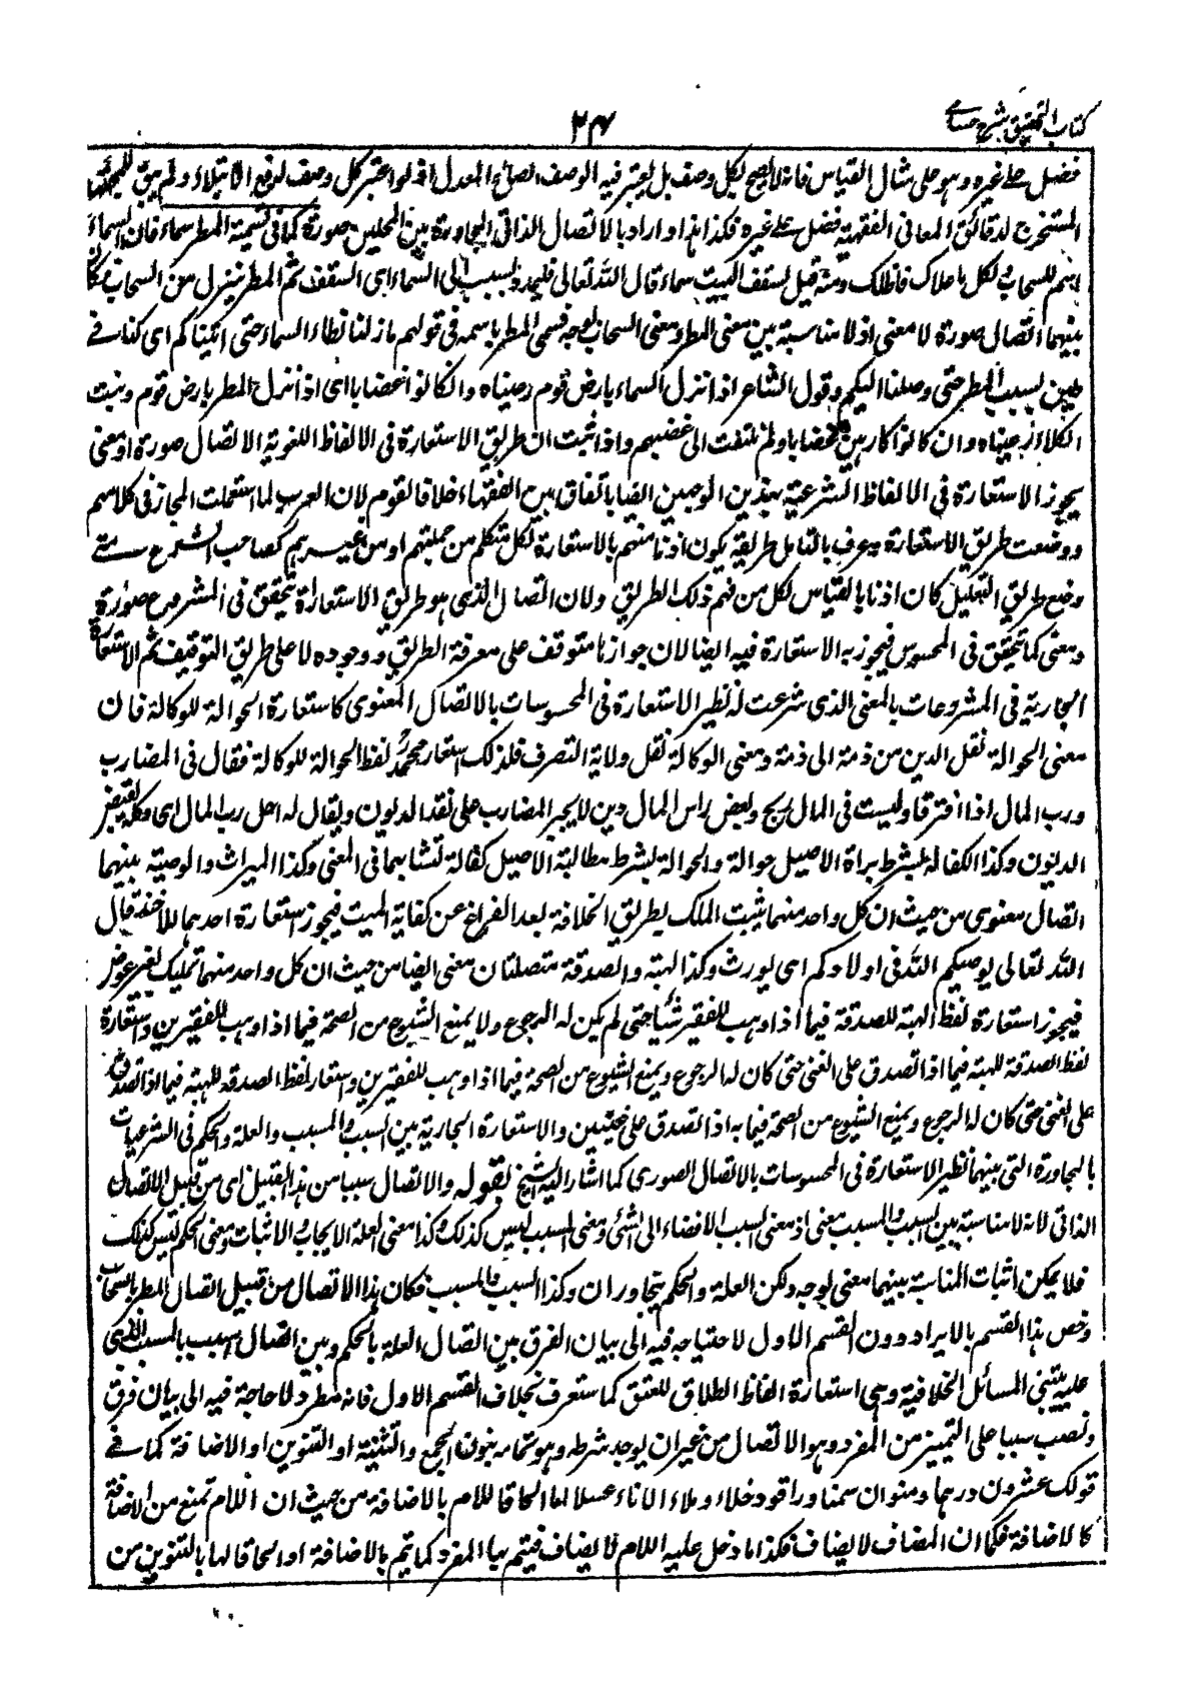 كتاب التحقيق شرح حسامي
٢٤
فضل على غيره وهو على مثال القياس فانه لا يصح لكل وصف بل يعتبر فيه الوصف الصالح المعدل اذ لو اعتبر كل وصف لارتفع الابتلاء ولم يبق للمجتهد
المستخرج لدقائق المعانى الفقهية فضل على غيره فكذا هذا واراد بالاتصال الذاتى المجاورة بين المحلين صورة كما فى تسمية المطر سماء فان السماء
اسم للسحاب ولكل ما علاك فاظلك ومنه قيل لسقف البيت سماء قال الله تعالى فليمدد بسبب الى السماء اى السقف ثم المطر ينزل من السحاب فكان
بينهما اتصال صورة لا معنى اذ لا مناسبة بين معنى المطر ومعنى السحاب بوجه فسمى المطر باسمه فى قولهم ما زلنا نطاء السماء حتى اتيناكم اى كنا فى
طين بسبب المطر حتى وصلنا اليكم وقول الشاعر اذا نزل السماء بارض قوم رعيناه وان كانوا غضابا اى اذا نزل المطر بارض قوم ونبت
الكلاء رعيناه وان كانوا كارهين غضابا ولم نلتفت الى غضبهم واذا ثبت ان طريق الاستعارة فى الالفاظ اللغوية الاتصال صورة او معنى
يجوز الاستعارة فى الالفاظ الشرعية بهذين الوجهين ايضا باتفاق بين الفقهاء خلافا لقوم لان العرب لما استعملت المجاز فى كلامهم
ووضعت طريق الاستعارة وعرف بالتامل طريقه يكون اذنا منهم بالاستعارة لكل متكلم من جملتهم او من غيرهم كصاحب الشرع متى
وضع طريق التعليل كان اذنا بالقياس لكل من فهم ذلك الطريق ولان اتصال الذى هو طريق الاستعارة تتحقق فى المشروع صورة
ومعنى كما تتحقق فى المحسوس فيجوز به الاستعارة فيه ايضا لان جوازها متوقف على معرفة الطريق ووجوده لا على طريق التوقيف ثم الاستعارة
الجارية فى المشروعات بالمعنى الذى شرعت له نظير الاستعارة فى المحسوسات بالاتصال المعنوى كاستعارة الحوالة للوكالة فان
معنى الحوالة نقل الدين من ذمة الى ذمة ومعنى الوكالة نقل ولاية التصرف فلذلك استعار محمد لفظ الحوالة للوكالة فقال فى المضارب
ورب المال اذا افترقا وليست فى المال ربح وبعض راس المال دين لا يجبر المضارب على نقد الديون ويقال له احل رب المال اى وكله بقبض
الديون وكذا الكفالة بشرط براءة الاصيل حوالة والحوالة بشرط مطالبة الاصيل كفالة لتشابههما فى المعنى وكذا الميراث والوصية بينهما
اتصال معنوى من حيث ان كل واحد منهما يثبت الملك بطريق الخلافة بعد الفراغ عن كفاية الميت فيجوز استعارة احدهما للآخر قال
الله تعالى يوصيكم الله فى اولادكم اى يورث وكذا الهبة والصدقة متصلتان معنى ايضا من حيث ان كل واحد منهما تمليك بغير عوض
فيجوز استعارة لفظ الهبة للصدقة فيما اذا وهب للفقير شيأ حتى لم يكن له الرجوع ولا يمنع الشيوع من الصحة فيما اذا وهب للفقيرين واستعارة
لفظ الصدقة للهبة فيما اذا تصدق على الغنى حتى كان له الرجوع ويمنع الشيوع من الصحة فيما اذا وهب للفقيرين واستعار لفظ الصدقة للهبة فيما اذا تصدق
على الغنى حتى كان له الرجوع ويمنع الشيوع من الصحة فيما به اذا تصدق على غنيين والاستعارة الجارية بين السبب والمسبب والعلة والحكم فى الشرعيات
بالمجاورة التى بينهما نظير الاستعارة فى المحسوسات بالاتصال الصورى كما اشار اليه الشيخ بقوله والاتصال سببا من هذا القبيل اى من قبيل الاتصال
الذاتى لانه لا مناسبة بين السبب والمسبب معنى اذ معنى السبب الافضاء الى الشئ ومعنى المسبب ليس كذلك وكذا معنى العلة الايجاب والاثبات ومعنى الحكم ليس كذلك
فلا يمكن اثبات المناسبة بينهما معنى بوجه ولكن العلة والحكم يتجاوران وكذا السبب والمسبب فكان هذا الاتصال من قبيل اتصال المطر بالسحاب
وخص هذا القسم بالايراد دون القسم الاول لاحتياجه فيه الى بيان الفرق بين اتصال العلة بالحكم وبين اتصال السبب بالمسبب الذى
عليه يبتنى المسائل الخلافية وهى استعارة الفاظ الطلاق للعتق كما ستعرف بخلاف القسم الاول فانه مطرد لا حاجة فيه الى بيان فرق
ونصب سببا على التمييز من المفرد وهو الاتصال من غير ان يوجد شرطه وهو تمامه بنون الجمع والتثنية او التنوين او الاضافة كما فى
قولك عشرون درهما ومنوان سمنا وراقود خلا وملاء الاناء عسلا اما الحاقا للام بالاضافة من حيث ان اللام تمنع من الاضافة
كالاضافة فكما ان المضاف لا يضاف فكذا ما دخل عليه اللام لا يضاف فيتم بها المفرد كما تم بالاضافة او الحاقا لها بالتنوين من